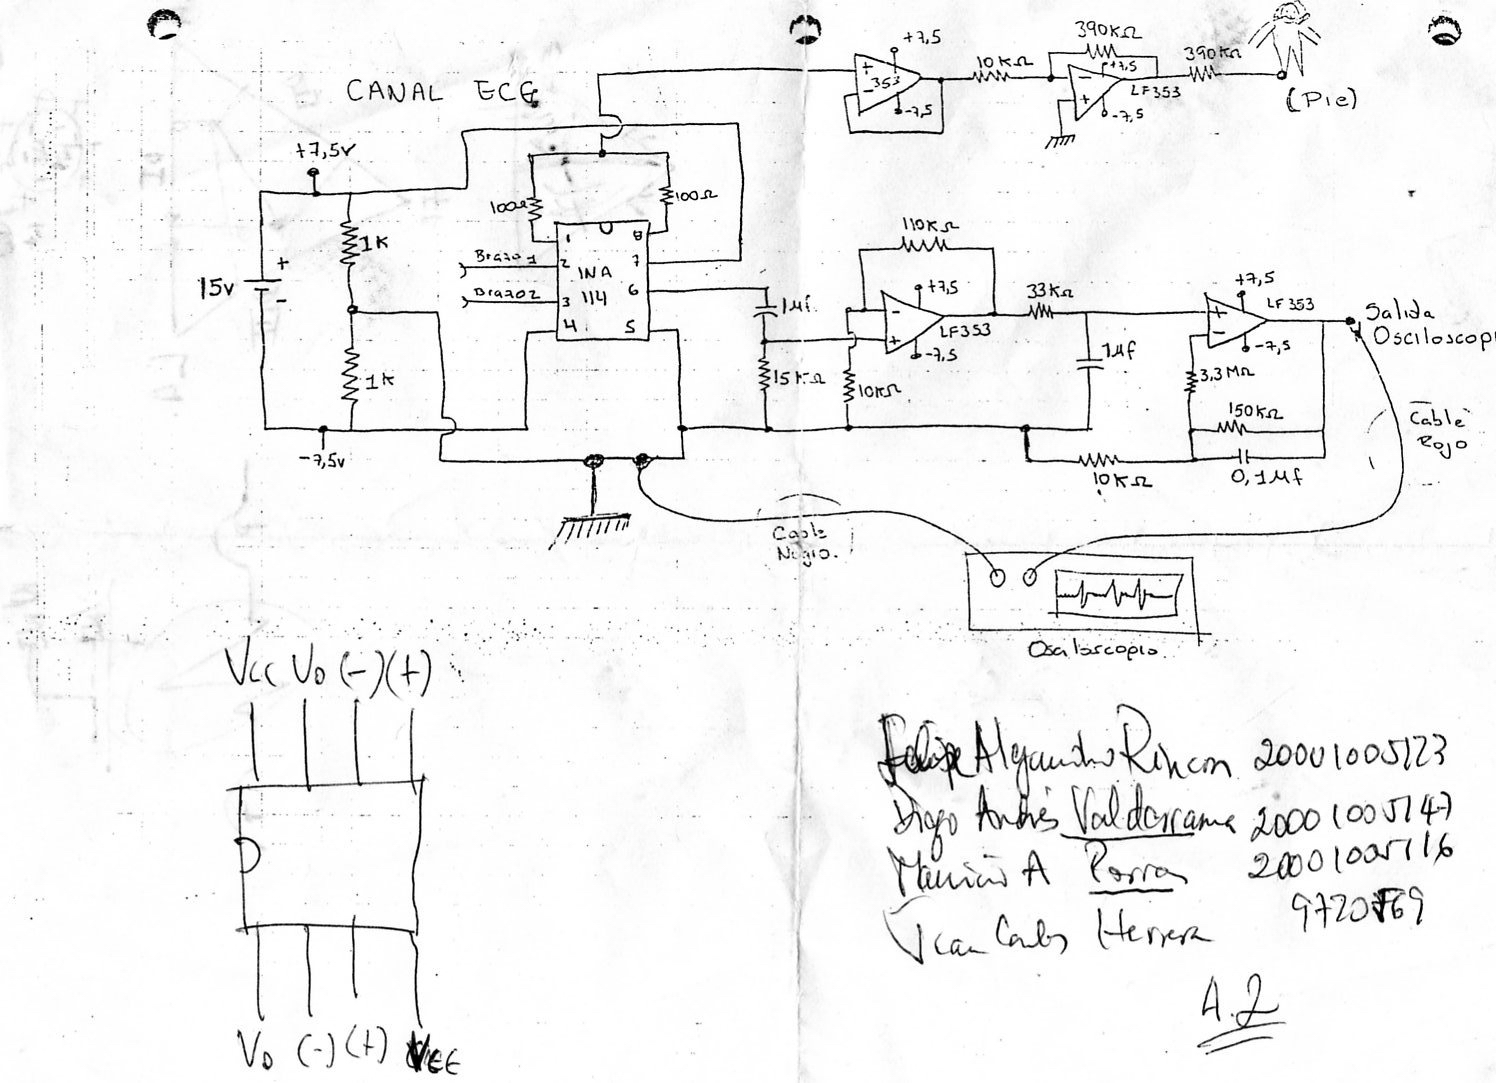 CANAL ECG
+7,5v
15v
+
-
1K
1K
-7,5v
100Ω
100Ω
Brazo1
Brazo2
1
2
3
4
INA
114
8
7
6
5
+7,5
+
-
353
-7,5
10KΩ
390KΩ
-
+
+7,5
-7,5
LF353
390KΩ
(Pie)
1µf
15KΩ
10KΩ
110KΩ
-
+
+7,5
-7,5
LF353
33KΩ
1µf
+
-
+7,5
-7,5
LF353
3,3MΩ
150KΩ
0,1µf
10KΩ
Salida
Osciloscopi
Cable
Rojo
Cable
Negro.
Osciloscopio
Vcc Vo (-) (+)
Vo (-) (+) VEE
Felipe Alejandro Rincon 20001005123
Diego Andrés Valderrama 20001005147
Mauricio A Porras 20001005116
Juan Carlos Herrera
4.2